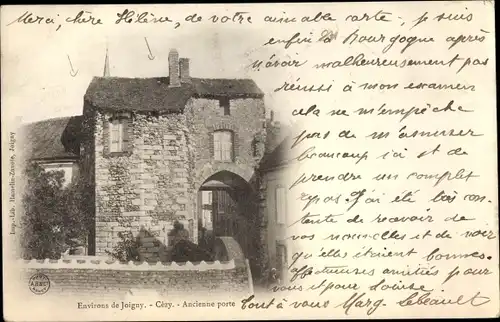 Merci, chère Hélène, de votre aimable carte, je suis
enfin à la Bourgogne après
n'avoir malheureusement pas
réussi à mon examen
cela ne m'empêche
pas de m'amuser
beaucoup ici et de
prendre un complet
repos. J'ai été bien contente
de recevoir de
vos nouvelles et de voir
qu'elles étaient bonnes.
Affectueuses amitiés pour
vous et pour Louise.
Tout à vous Marg. Lebeault
Imp.-Lib. Hamelle-Zanote, Joigny
ABR
Environs de Joigny. - Cézy. - Ancienne porte